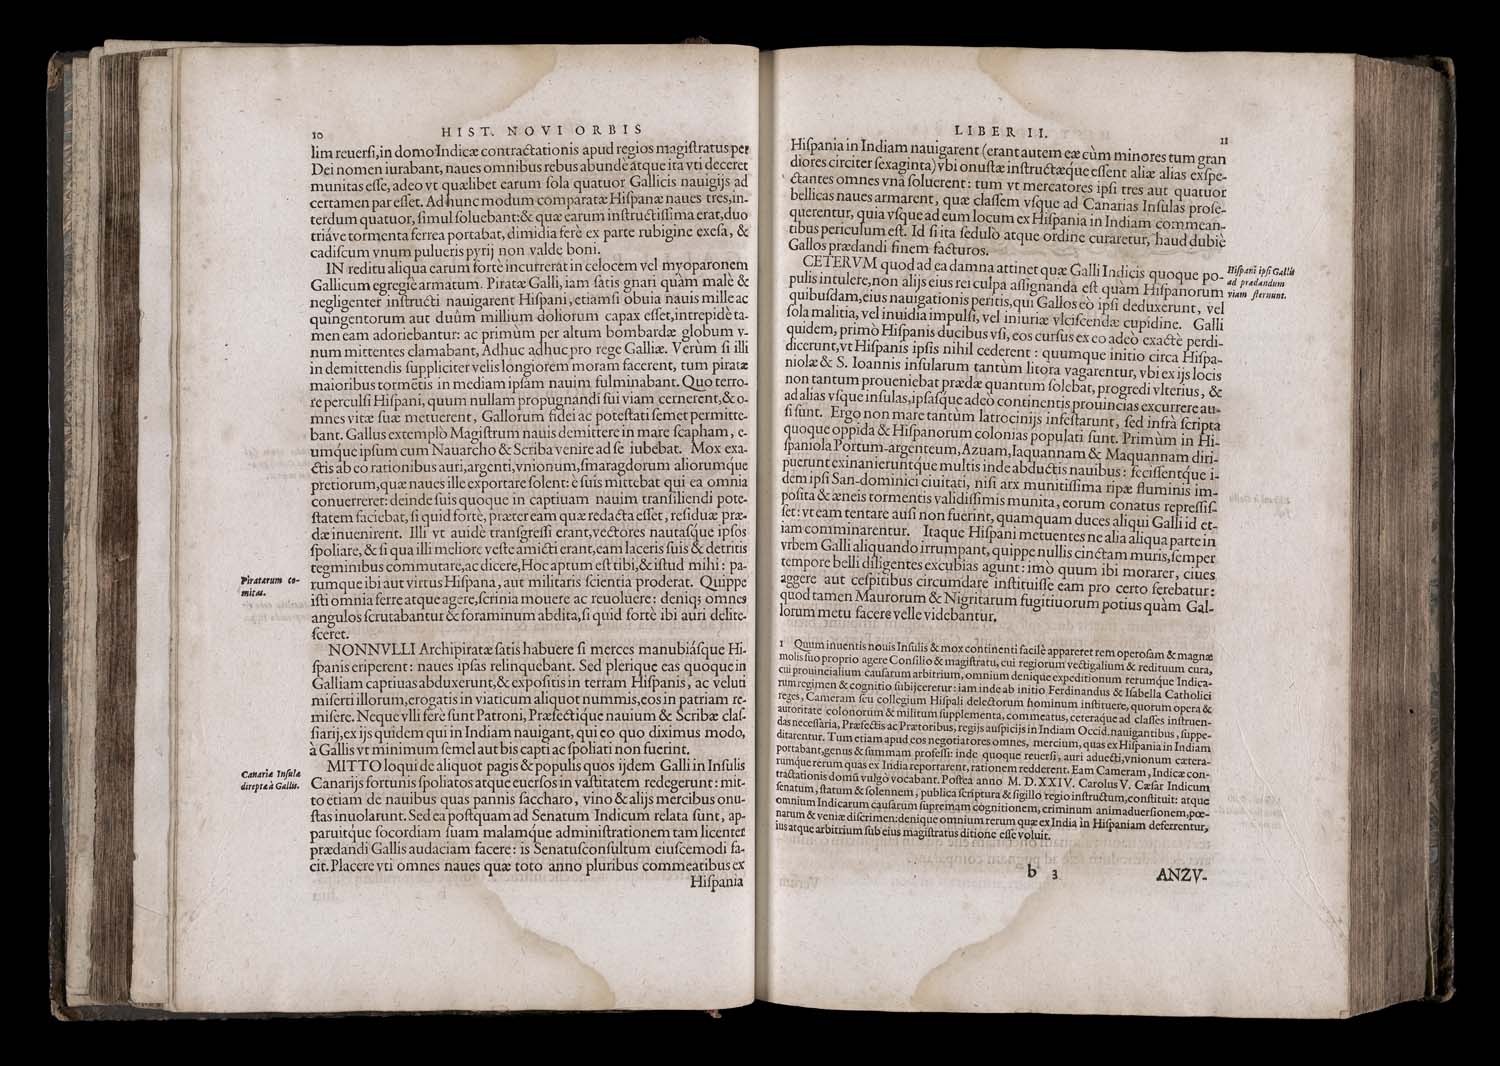 10
HIST. NOVI ORBIS
lim reuerſi, in domo Indicæ contractationis apud regios magiſtratus per
Dei nomen iurabant, naues omnibus rebus abundè atque ita vti deceret
munitas eſſe, adeo vt quælibet earum ſola quatuor Gallicis nauigijs ad
certamen par eſſet. Ad hunc modum comparatæ Hiſpanæ naues tres, in-
terdum quatuor, ſimul ſoluebant: & quæ earum inſtructiſſima erat, duo
triáve tormenta ferrea portabat, dimidia ferè ex parte rubigine exeſa, &
cadiſcum vnum pulueris pyrij non valde boni.
IN reditu aliqua earum fortè incurrerat in celocem vel myoparonem
Gallicum egregiè armatum. Piratæ Galli, iam ſatis gnari quàm malè &
negligenter inſtructi nauigarent Hiſpani, etiamſi obuia nauis mille ac
quingentorum aut duûm millium doliorum capax eſſet, intrepidè ta-
men eam adoriebantur: ac primùm per altum bombardæ globum v-
num mittentes clamabant, Adhuc adhuc pro rege Galliæ. Verùm ſi illi
in demittendis ſuppliciter velis longiorem moram facerent, tum piratæ
maioribus tormētis in mediam ipſam nauim fulminabant. Quo terro-
re perculſi Hiſpani, quum nullam propugnandi ſui viam cernerent, & o-
mnes vitæ ſuæ metuerent, Gallorum fidei ac poteſtati ſemet permitte-
bant. Gallus extemplò Magiſtrum nauis demittere in mare ſcapham, e-
umq́ue ipſum cum Nauarcho & Scriba venire ad ſe iubebat. Mox exa-
ctis ab eo rationibus auri, argenti, vnionum, ſmaragdorum aliorumq́ue
pretiorum, quæ naues ille exportare ſolent: è ſuis mittebat qui ea omnia
conuerreret: deinde ſuis quoque in captiuam nauim tranſiliendi pote-
ſtatem faciebat, ſi quid fortè, præter eam quæ redacta eſſet, reſiduæ præ-
dæ inuenirent. Illi vt auidè tranſgreſſi erant, vectores nautaſq́ue ipſos
ſpoliare, & ſi qua illi meliore veſte amicti erant, eam laceris ſuis & detritis
tegminibus commutare, ac dicere, Hoc aptum eſt tibi, & iſtud mihi: pa-
rumque ibi aut virtus Hiſpana, aut militaris ſcientia proderat. Quippe
iſti omnia ferre atque agere, ſcrinia mouere ac reuoluere: deniq; omnes
angulos ſcrutabantur & foraminum abdita, ſi quid fortè ibi auri delite-
ſceret.
Piratarum co-
mitas.
NONNVLLI Archipiratæ ſatis habuere ſi merces manubiáſque Hi-
ſpanis eriperent: naues ipſas relinquebant. Sed plerique eas quoque in
Galliam captiuas abduxerunt, & expoſitis in terram Hiſpanis, ac veluti
miſerti illorum, erogatis in viaticum aliquot nummis, eos in patriam re-
miſere. Neque vlli ferè ſunt Patroni, Præfectique nauium & Scribæ claſ-
ſiarij, ex ijs quidem qui in Indiam nauigant, qui eo quo diximus modo,
à Gallis vt minimum ſemel aut bis capti ac ſpoliati non fuerint.
MITTO loqui de aliquot pagis & populis quos ijdem Galli in Inſulis
Canarijs fortunis ſpoliatos atque euerſos in vaſtitatem redegerunt: mit-
to etiam de nauibus quas pannis ſaccharo, vino & alijs mercibus onu-
ſtas inuolarunt. Sed ea poſtquam ad Senatum Indicum relata ſunt, ap-
paruitq́ue ſocordiam ſuam malamque adminiſtrationem tam licenter
prædandi Gallis audaciam facere: is Senatuſconſultum eiuſcemodi fa-
cit. Placere vti omnes naues quæ toto anno pluribus commeatibus ex
Hiſpania
Canariæ Inſulæ
direptæ à Gallis.
LIBER II.
11
Hiſpania in Indiam nauigarent (erant autem eæ cùm minores tum gran
diores circiter ſexaginta) vbi onuſtæ inſtructæque eſſent aliæ alias exſpe-
ctantes omnes vnà ſoluerent: tum vt mercatores ipſi tres aut quatuor
bellicas naues armarent, quæ claſſem vſque ad Canarias Inſulas proſe-
querentur, quia vſque ad eum locum ex Hiſpania in Indiam commean-
tibus periculum eſt. Id ſi ita ſedulò atque ordine curaretur, haud dubiè
Gallos prædandi finem facturos.
CETERVM quod ad ea damna attinet quæ Galli Indicis quoque po-
pulis intulere, non alijs eius rei culpa aſſignanda eſt quàm Hiſpanorum
quibuſdam, eius nauigationis peritis, qui Gallos eò ipſi deduxerunt, vel
ſola malitia, vel inuidia impulſi, vel iniuriæ vlciſcendæ cupidine. Galli
quidem, primò Hiſpanis ducibus vſi, eos curſus ex eo adeò exactè perdi-
dicerunt, vt Hiſpanis ipſis nihil cederent: quumque initio circa Hiſpa-
niolæ & S. Ioannis inſularum tantùm litora vagarentur, vbi ex ijs locis
non tantum proueniebat prædæ quantum ſolebat, progredi vlterius, &
ad alias vſque inſulas, ipſaſque adeò continentis prouincias excurrere au-
ſi ſunt. Ergo non mare tantùm latrocinijs infeſtarunt, ſed infrà ſcripta
quoque oppida & Hiſpanorum colonias populati ſunt. Primùm in Hi-
ſpaniola Portum-argenteum, Azuam, Iaquannam & Maquannam diri-
puerunt exinanieruntque multis inde abductis nauibus: feciſſentque i-
dem ipſi San-dominici ciuitati, niſi arx munitiſſima ripæ fluminis im-
poſita & æneis tormentis validiſſimis munita, eorum conatus repreſſiſ-
ſet: vt eam tentare auſi non fuerint, quamquam duces aliqui Galli id et-
iam comminarentur. Itaque Hiſpani metuentes ne alia aliqua parte in
vrbem Galli aliquando irrumpant, quippe nullis cinctam muris, ſemper
tempore belli diligentes excubias agunt: imò quum ibi morarer, ciues
aggere aut ceſpitibus circumdare inſtituiſſe eam pro certo ferebatur:
quod tamen Maurorum & Nigritarum fugitiuorum potius quàm Gal-
lorum metu facere velle videbantur.
Hiſpani ipſi Gallis
ad prædandum
viam ſternunt.
1 Quum inuentis nouis Inſulis & mox continenti facilè appareret rem operoſam & magnæ
molis ſuo proprio agere Conſilio & magiſtratu, cui regiorum vectigalium & redituum cura,
cui prouincialium cauſarum arbitrium, omnium denique expeditionum rerumque Indica-
rum regimen & cognitio ſubijceretur: iam inde ab initio Ferdinandus & Iſabella Catholici
reges, Cameram ſeu collegium Hiſpali delectorum hominum inſtituere, quorum opera &
autoritate colonorum & militum ſupplementa, commeatus, ceteraque ad claſſes inſtruen-
das neceſſaria, Præfectis ac Prætoribus, regijs auſpicijs in Indiam Occid. nauigantibus, ſuppe-
ditarentur. Tum etiam apud eos negotiatores omnes, mercium, quas ex Hiſpania in Indiam
portabant, genus & ſummam profeſſi: inde quoque reuerſi, auri aduecti, vnionum cætera-
rumque rerum quas ex India reportarent, rationem redderent. Eam Cameram, Indicæ con-
tractationis domū vulgò vocabant. Poſtea anno M. D. XXIV. Carolus V. Cæſar Indicum
ſenatum, ſtatum & ſolennem, publica ſcriptura & ſigillo regio inſtructum, conſtituit: atque
omnium Indicarum cauſarum ſupremam cognitionem, criminum animaduerſionem, pœ-
narum & veniæ diſcrimen: denique omnium rerum quæ ex India in Hiſpaniam deferrentur,
ius atque arbitrium ſub eius magiſtratus ditione eſſe voluit.
b 3
ANZV-